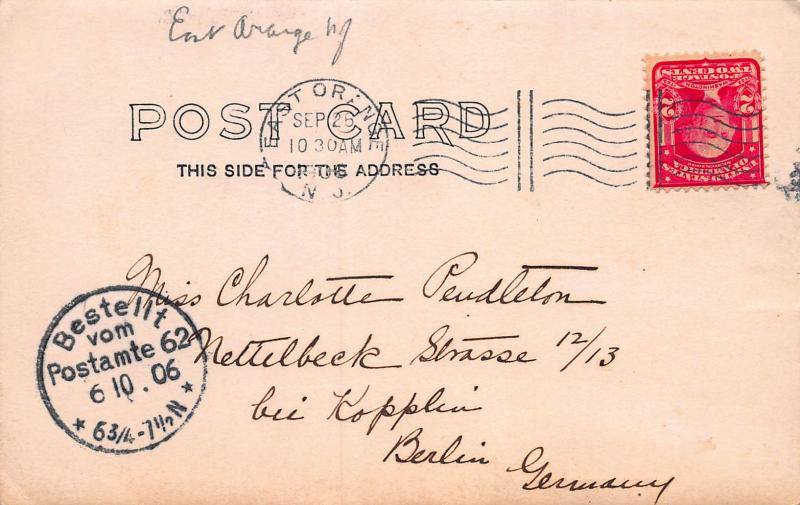 East Orange NJ
POST CARD
THIS SIDE FOR THE ADDRESS
EAST ORANGE
SEP 26
10 30AM
N. J.
2 2
TWO CENTS
POSTAGE
WASHINGTON
Miss Charlotte Pendleton
Nettelbeck Strasse 12/13
bei Kopplin
Berlin
Germany
Bestellt
vom
Postamte 62
6 10 . 06
* 6 3/4 - 7 1/2 N *